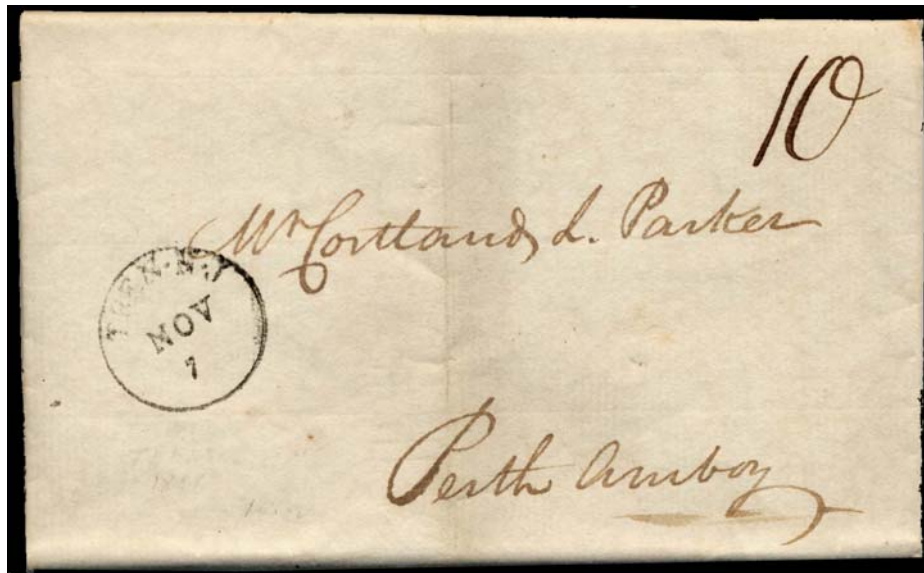 10
Mr Cortland L. Parker
TREN. N.J
NOV
7
Perth Amboy